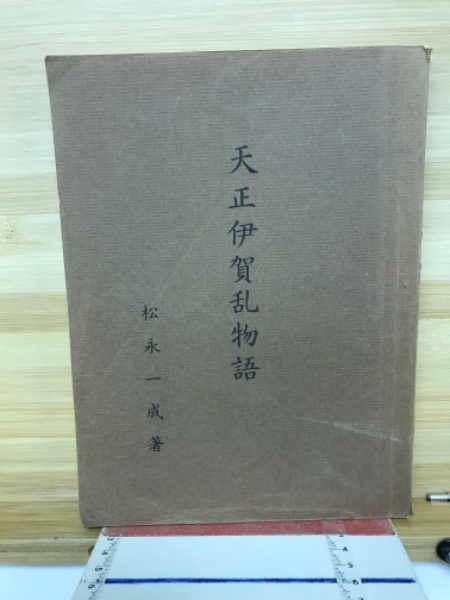 天正伊賀乱物語
松永一成著